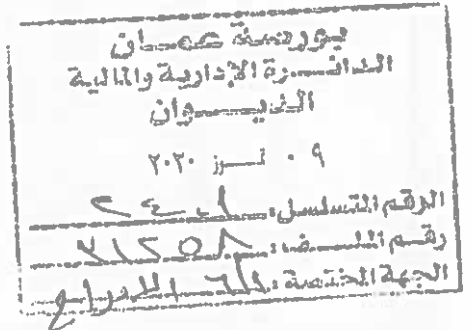 بورصة عمان
الدائرة الإدارية والمالية
الديوان
٠٩ تموز ٢٠٢٠
الرقم المتسلسل:
رقم الملف: ٣١٢٥٨
الجهة المختصة: